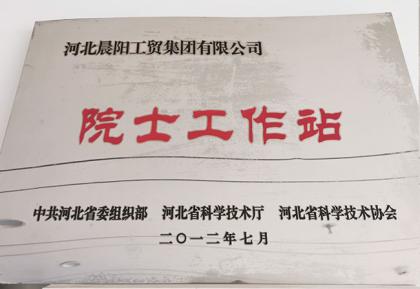 河北晨阳工贸集团有限公司
院士工作站
中共河北省委组织部 河北省科学技术厅 河北省科学技术协会
二〇一二年七月